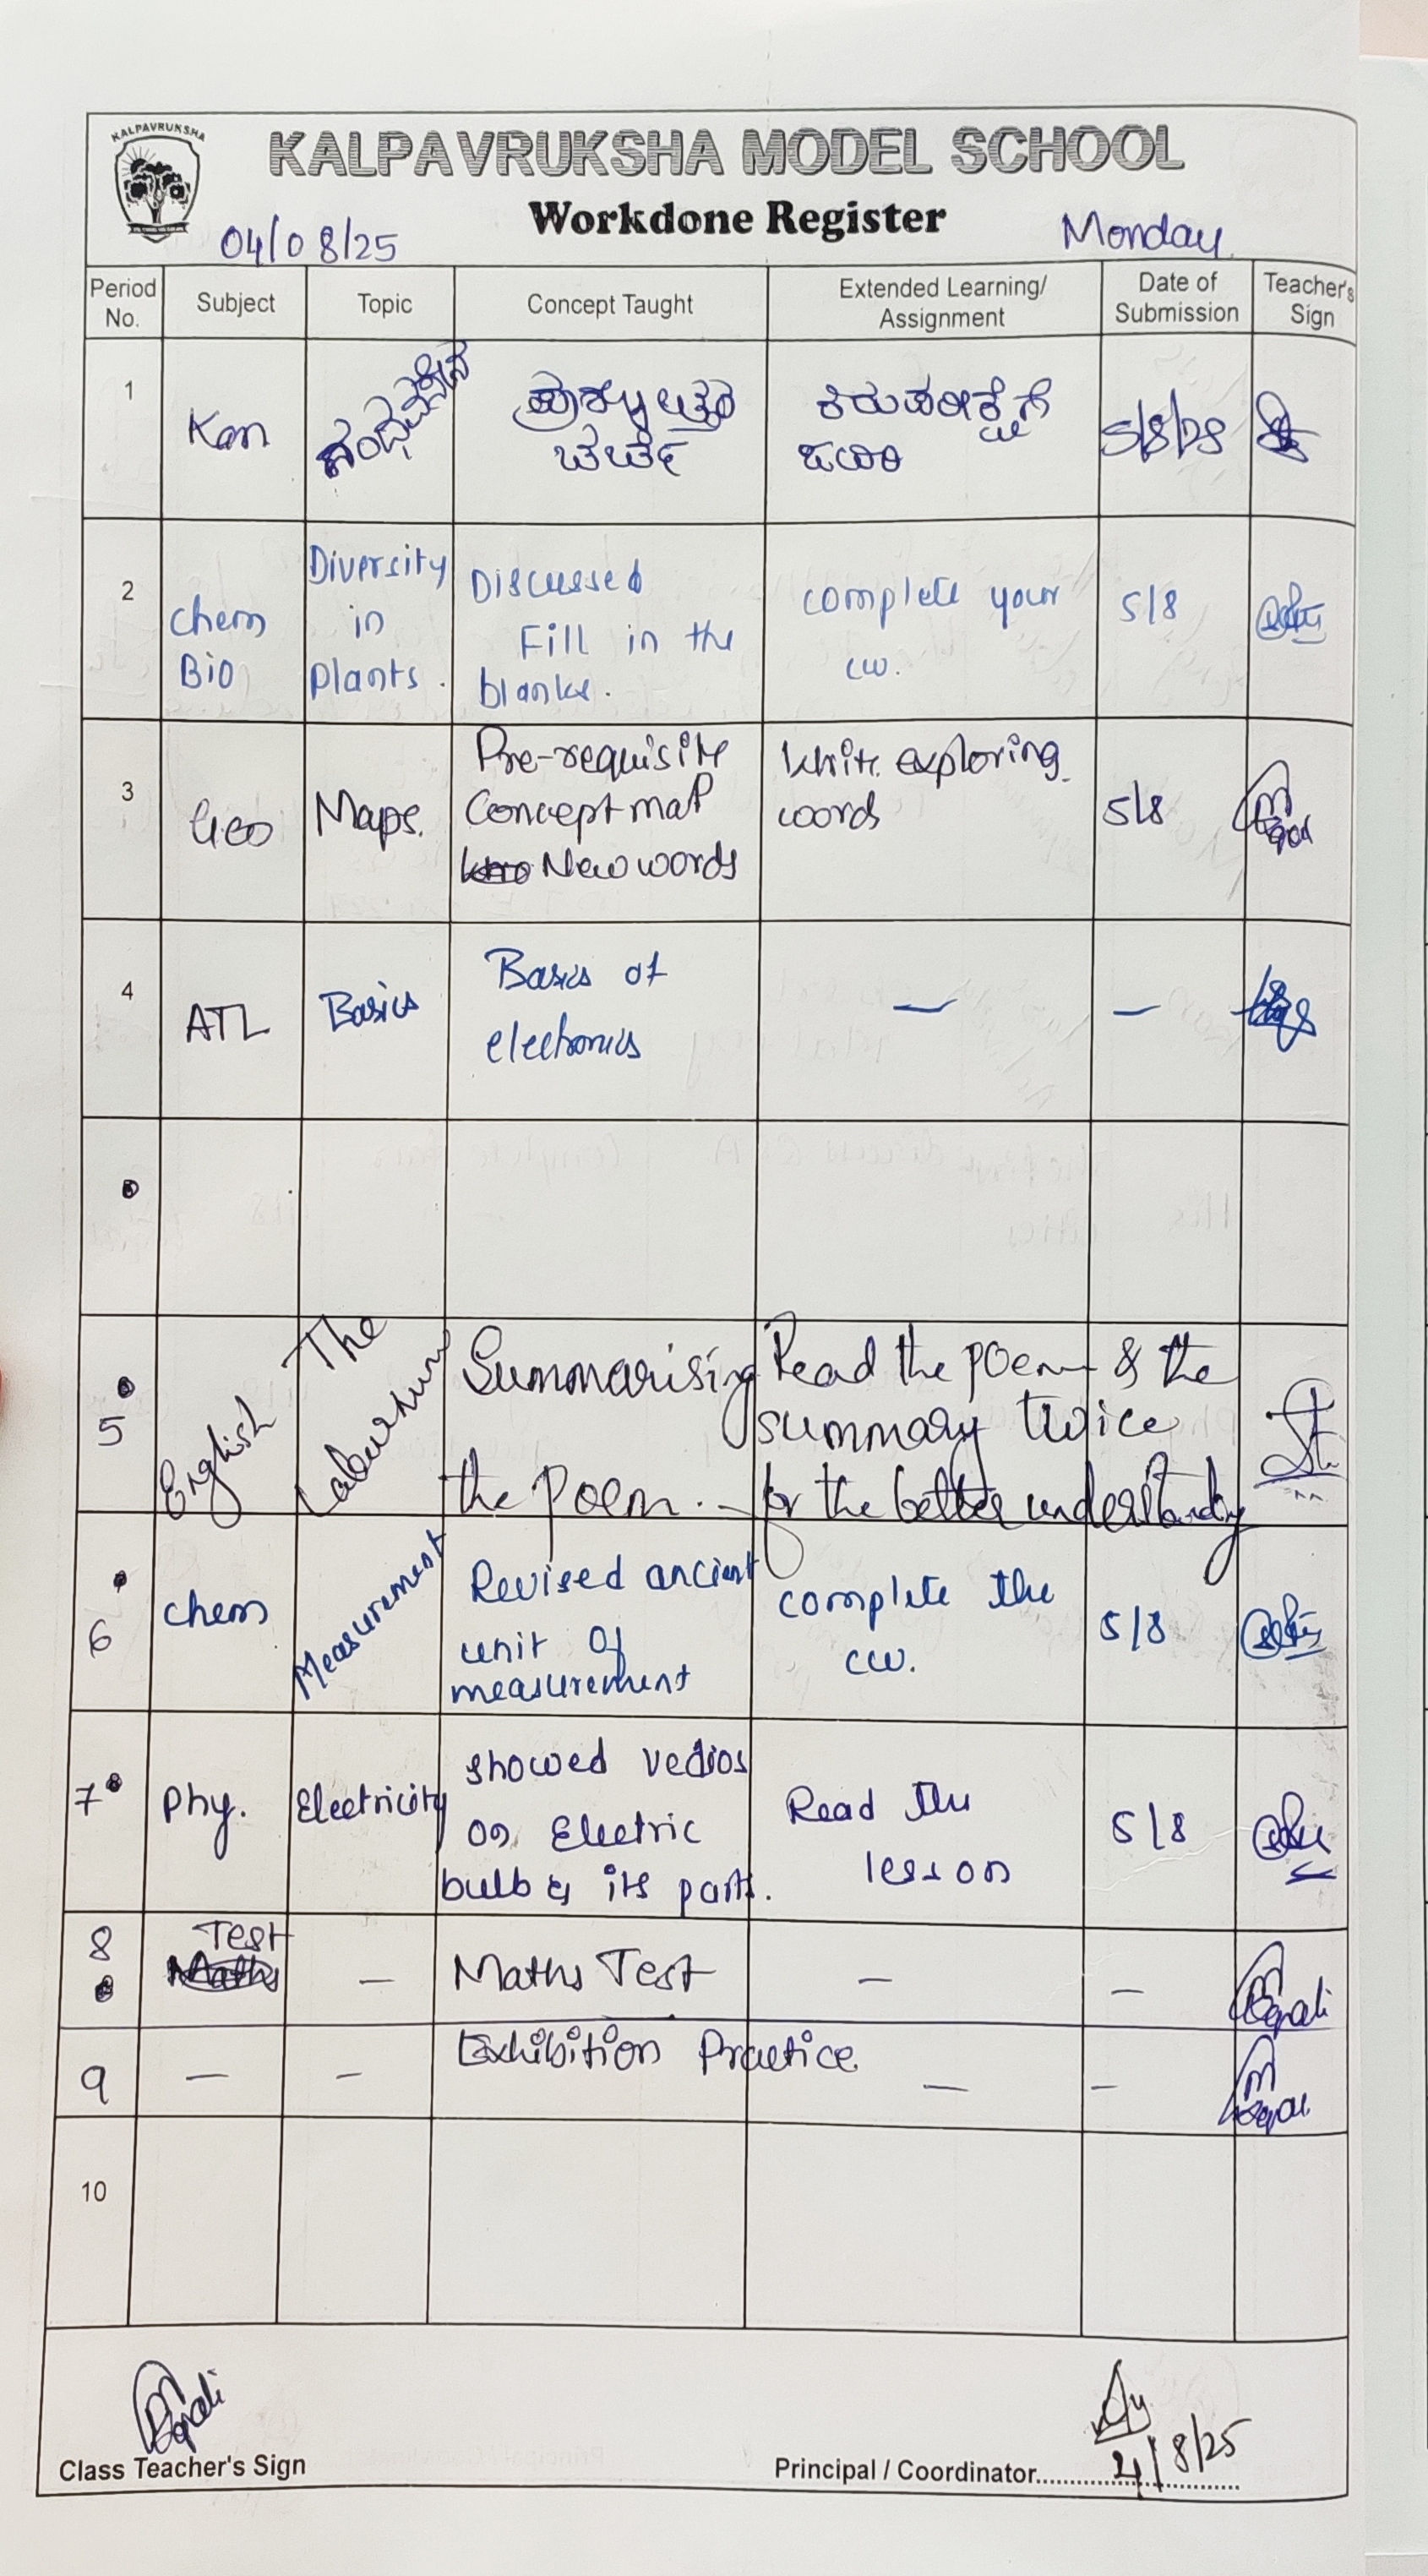 KALPAVRUKSHA
KALPAVRUKSHA MODEL SCHOOL
Workdone Register
04/08/25
Monday
Period No.
Subject
Topic
Concept Taught
Extended Learning/ Assignment
Date of Submission
Teacher's Sign
1
Kan
ಚರ್ಚೆ
ಕಿರುಪರೀಕ್ಷೆಗೆ
2
Chem
Bio
Diversity
in
plants.
Discussed
Fill in the
blanks.
complete your
cw.
5/8
3
Geo
Maps.
Pre-requisite
Concept map
New words
Write exploring
words
5/8
4
ATL
Basics
Basics of
electronics
—
—
5
English
The
Laburnum
Summarising
the Poem.
Read the poem & the
summary twice
for the better understandg
6
Chem
Measurement
Revised ancient
unit of
measurement
complete the
cw.
5/8
7
Phy.
Electricity
showed vedios
on Electric
bulb & its parts.
Read the
lesson
5/8
8
Test
—
Maths Test
—
—
9
—
—
Exhibition Practice
—
—
10
Class Teacher's Sign
Principal / Coordinator
4/8/25